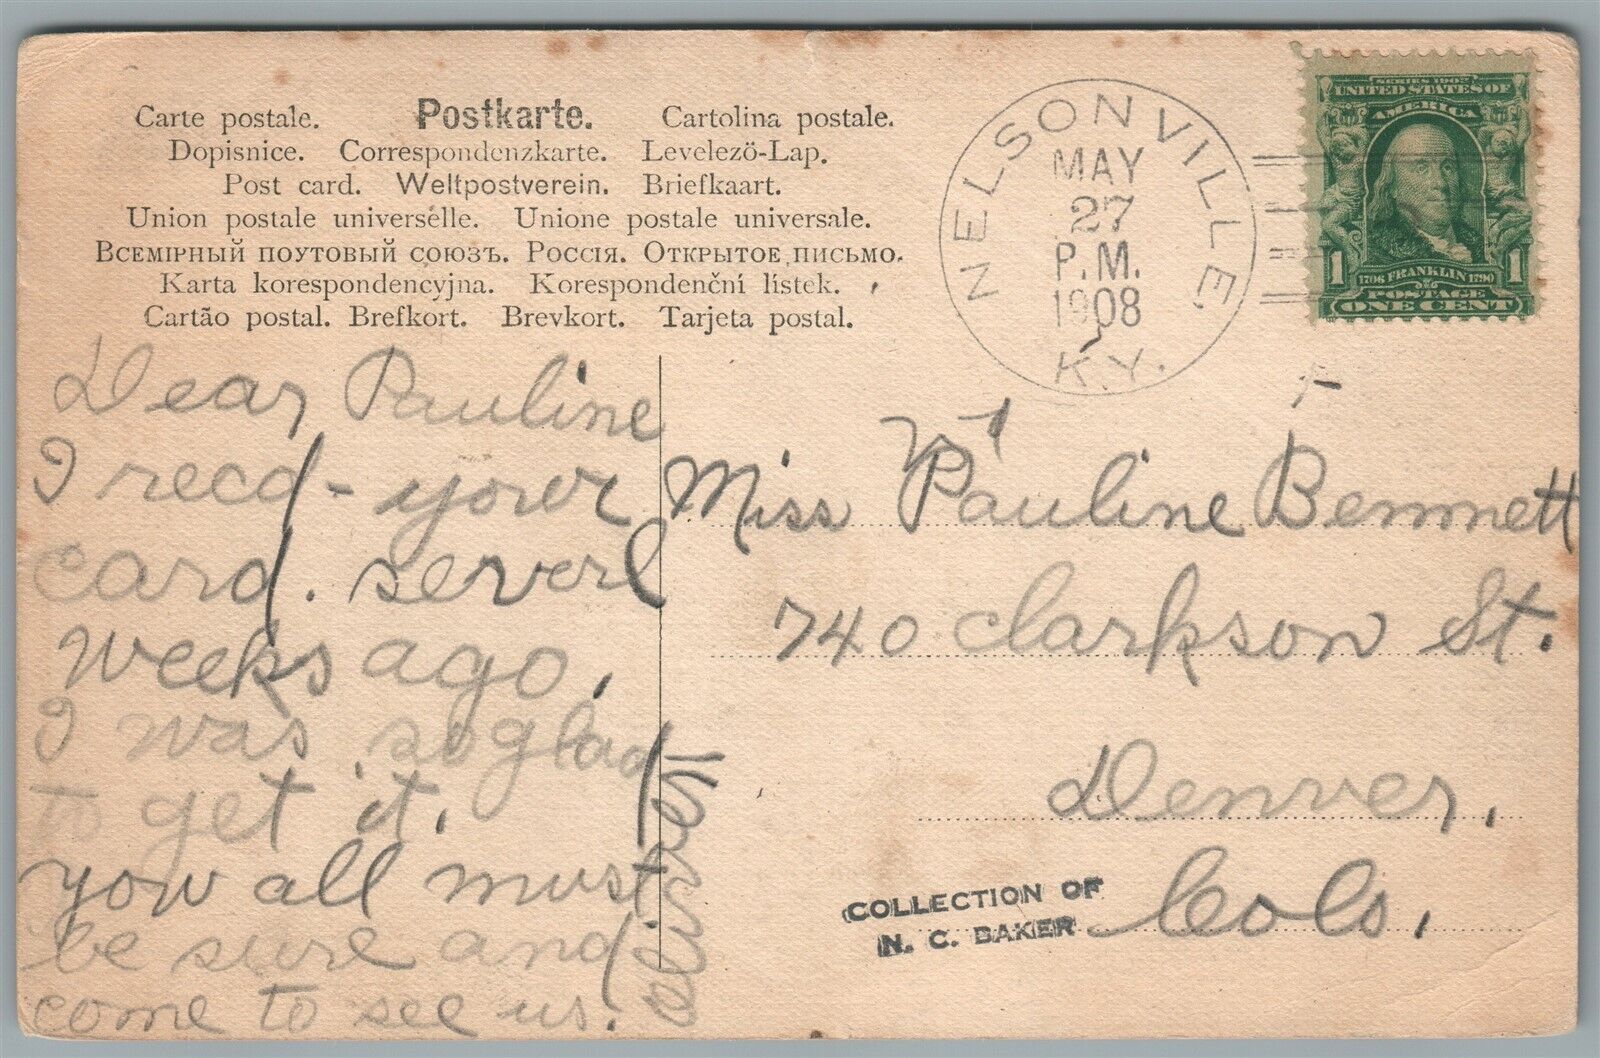 Carte postale. Postkarte. Cartolina postale.
Dopisnice. Correspondenzkarte. Levelező-Lap.
Post card. Weltpostverein. Briefkaart.
Union postale universelle. Unione postale universale.
Всемірный поутовый союзъ. Россія. Открытое письмо.
Karta korespondencyjna. Korespondenční lístek.
Cartão postal. Brefkort. Brevkort. Tarjeta postal.
NELSONVILLE,
MAY
27
P.M.
1908
KY.
SERIES 1902
UNITED STATES OF
AMERICA
1 1706 FRANKLIN 1790 1
POSTAGE
ONE CENT
Dear Pauline
I recd - your
card. severl
weeks ago.
I was so glad
to get it.
you all must
be sure and
come to see us.
Miss Pauline Bennett
740 Clarkson St.
Denver,
Colo.
COLLECTION OF
N. C. BAKER